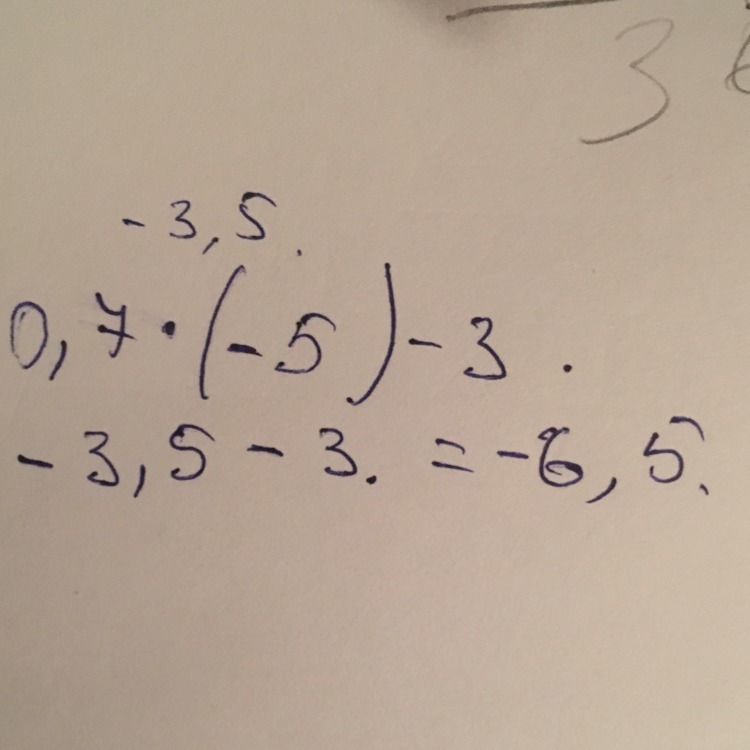 3
-3,5.
0,7·(-5)-3.
-3,5-3.=-6,5.